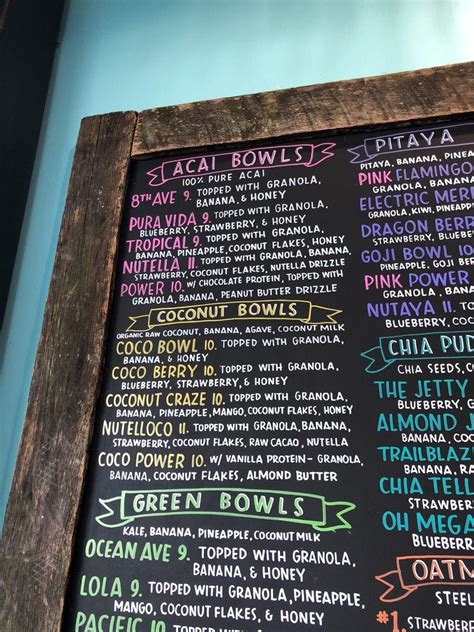 ACAI BOWLS
100% PURE ACAI
8TH AVE 9. TOPPED WITH GRANOLA,
BANANA, & HONEY
PURA VIDA 9. TOPPED WITH GRANOLA,
BLUEBERRY, STRAWBERRY, & HONEY
TROPICAL 9. TOPPED WITH GRANOLA,
BANANA, PINEAPPLE, COCONUT FLAKES, HONEY
NUTELLA 11. TOPPED WITH GRANOLA, BANANA,
STRAWBERRY, COCONUT FLAKES, NUTELLA DRIZZLE
POWER 10. W/ CHOCOLATE PROTEIN, TOPPED WITH
GRANOLA, BANANA, PEANUT BUTTER DRIZZLE
COCONUT BOWLS
ORGANIC RAW COCONUT, BANANA, AGAVE, COCONUT MILK
COCO BOWL 10. TOPPED WITH GRANOLA,
BANANA, & HONEY
COCO BERRY 10. TOPPED WITH GRANOLA,
BLUEBERRY, STRAWBERRY, & HONEY
COCONUT CRAZE 10. TOPPED WITH GRANOLA,
BANANA, PINEAPPLE, MANGO, COCONUT FLAKES, HONEY
NUTELLOCO 11. TOPPED WITH GRANOLA, BANANA,
STRAWBERRY, COCONUT FLAKES, RAW CACAO, NUTELLA
COCO POWER 10. W/ VANILLA PROTEIN - GRANOLA,
BANANA, COCONUT FLAKES, ALMOND BUTTER
GREEN BOWLS
KALE, BANANA, PINEAPPLE, COCONUT MILK
OCEAN AVE 9. TOPPED WITH GRANOLA,
BANANA, & HONEY
LOLA 9. TOPPED WITH GRANOLA, PINEAPPLE,
MANGO, COCONUT FLAKES, & HONEY
PACIFIC 10. TOPPED WITH GRANOLA,
PITAYA
PITAYA, BANANA, PINE
PINK FLAMINGO
GRANOLA, BANANA,
ELECTRIC MED
GRANOLA, KIWI, PINEAPPL
DRAGON BERR
STRAWBERRY, BLUE
GOJI BOWL 10
PINEAPPLE, GOJI BER
PINK POWER
GRANOLA, BANANA
NUTAYA 11. TO
BLUEBERRY, COC
CHIA PUD
CHIA SEEDS, C
THE JETTY
BLUEBERRY,
ALMOND J
STRAWBERRY,
TRAILBLAZ
BANANA, RA
CHIA TELL
STRAWBERRY,
OH MEGA
BLUEBERRY,
OATM
STEEL
#1. STRAWBERR
BANANA,